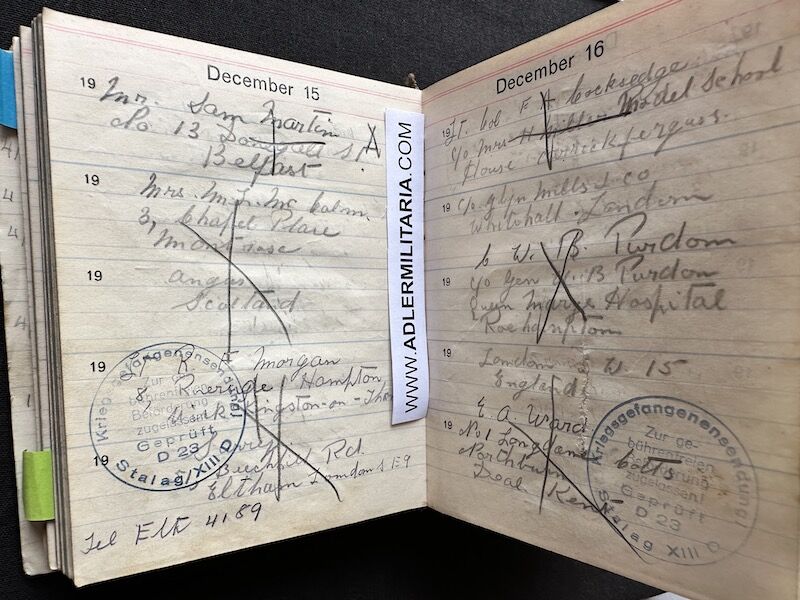 December 15
19 Mr. Sam Martin
No 13 St A
Belfast
19 Mrs. M. J. Mc Calm
3, Chapel Place
Montrose
19 Angus
Scotland
19 Morgan
8 Riverside Hampton
Wick Kingston-on-
19
Beechfield Rd.
Eltham London S E 9
Tel Elt 4189
Kriegsgefangenensendung!
Zur ge-
bührenfreien
Beförderung
zugelassen!
Geprüft
D 23
Stalag XIII D
WWW.ADLERMILITARIA.COM
December 16
19 Lt. Col. E A Cocksedge
c/o Mrs Model School
House Carrickfergus.
19 c/o Glyn Mills & Co
Whitehall. London
C. W. B. Purdom
19 c/o Gen W. B Purdom
Queen Marys Hospital
Roehampton
19 London S W. 15
England
E. A. Ward
19 No 1 cotts
Northbourne
Deal Kent
Kriegsgefangenensendung!
Zur ge-
bührenfreien
Beförderung
zugelassen!
Geprüft
D 23
Stalag XIII D